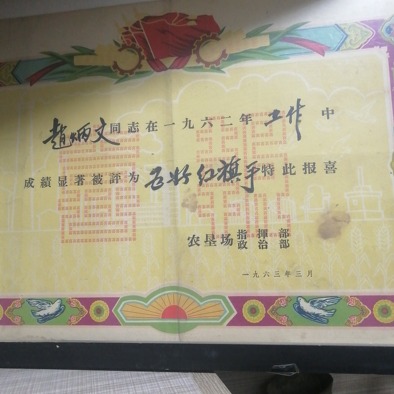 趙炳文同志在一九六二年工作中
成績显著被評为五好红旗手特此报喜
农垦场指揮部
政治部
一九六三年三月